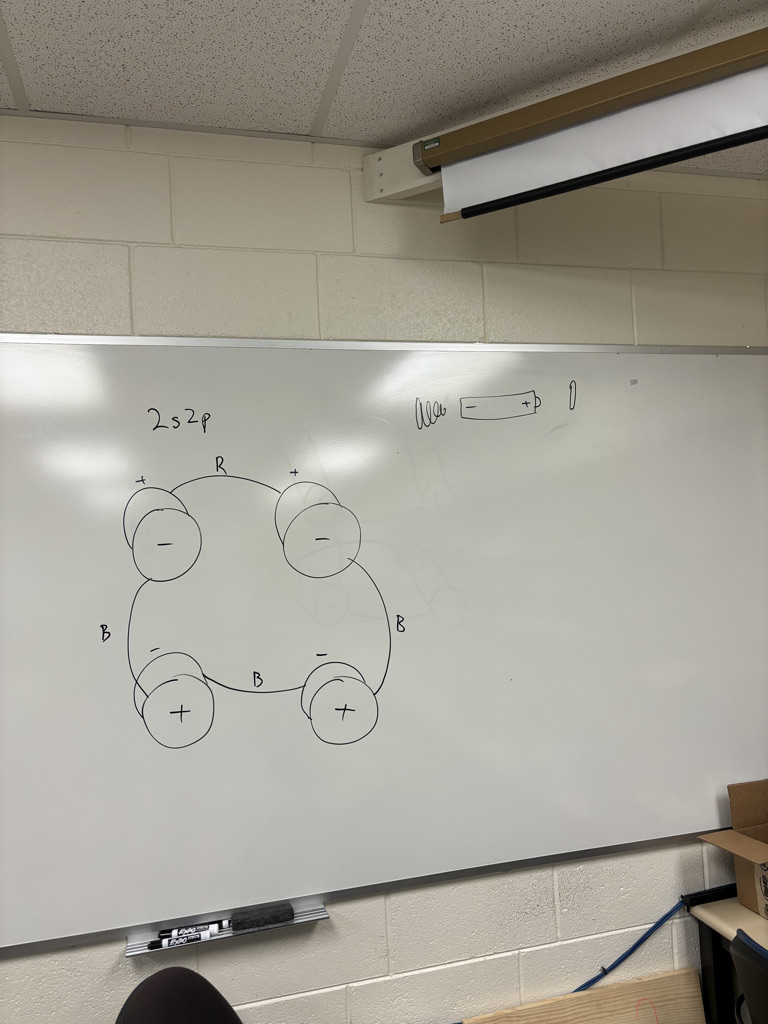 2s2p
- +
+ R +
- -
B B
- -
B
+ +
EXPO
EXPO